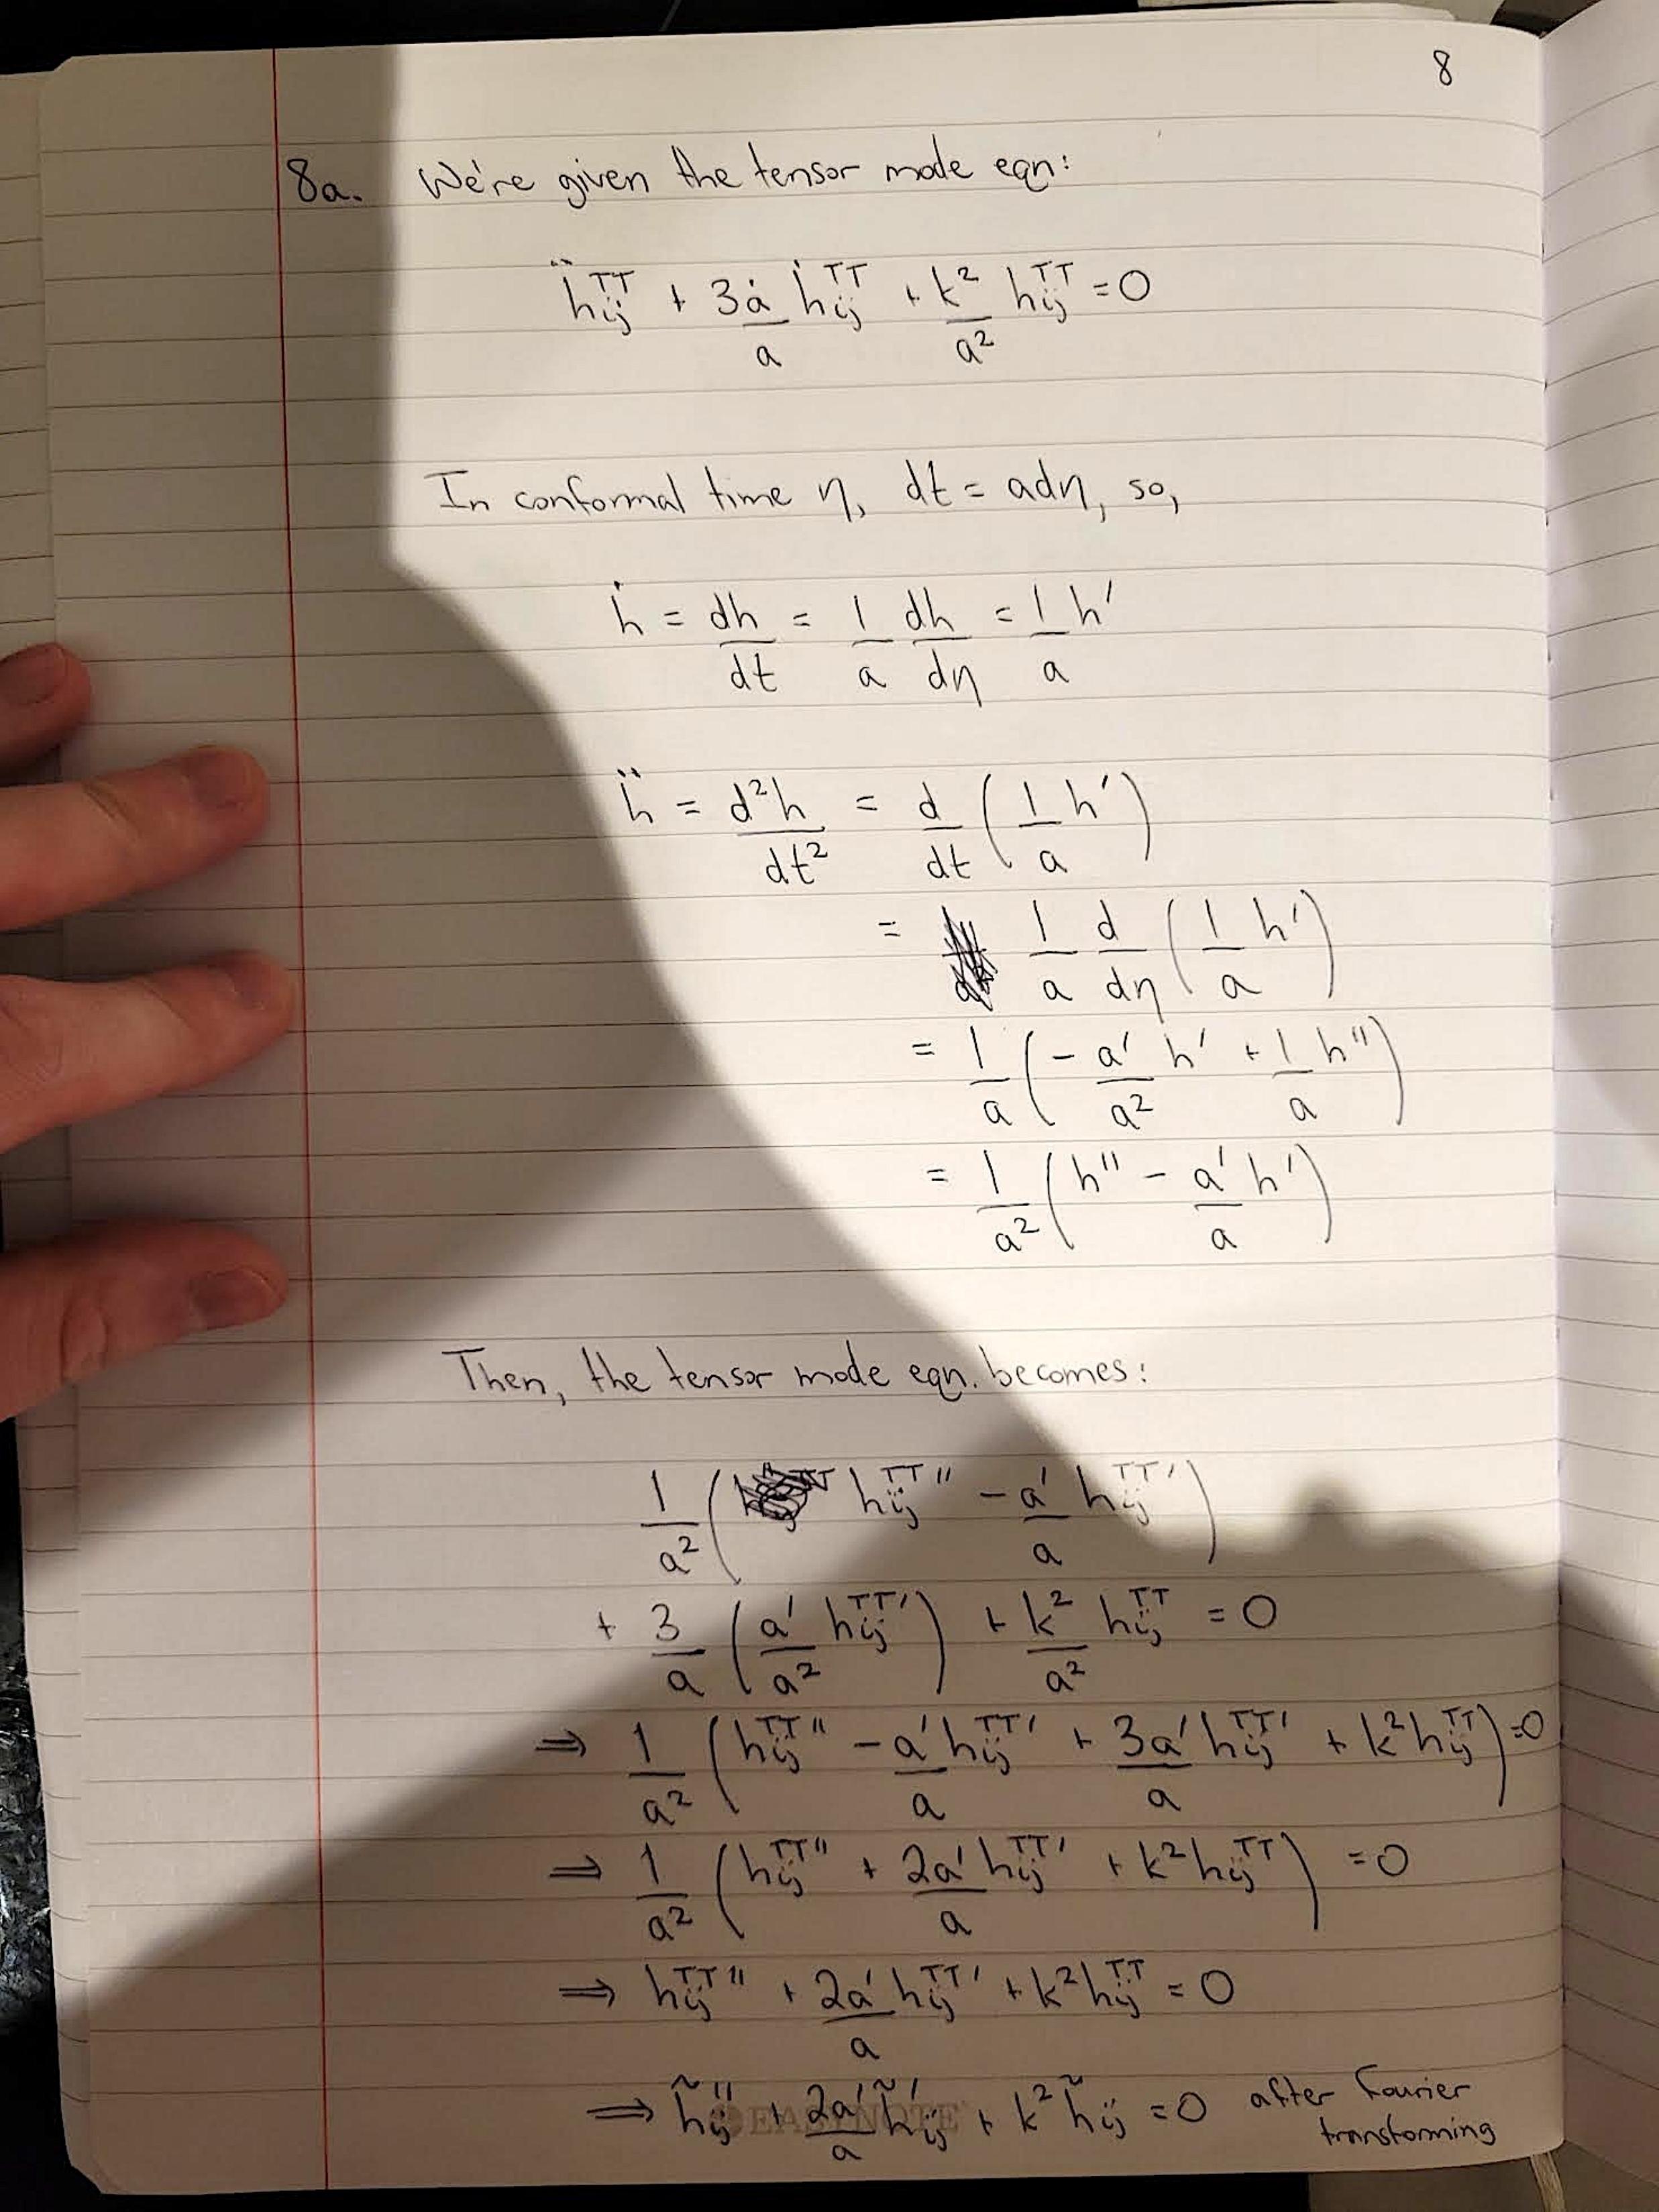 8
8a. We're given the tensor mode eqn:
ḧᵢⱼᵀᵀ + 3ȧ/a ḣᵢⱼᵀᵀ + k²/a² hᵢⱼᵀᵀ = 0
In conformal time η, dt = adη, so,
ḣ = dh/dt = 1/a dh/dη = 1/a h'
ḧ = d²h/dt² = d/dt (1/a h')
= 1/a d/dη (1/a h')
= 1/a (-a'/a² h' + 1/a h'')
= 1/a² (h'' - a'/a h')
Then, the tensor mode eqn. becomes:
1/a² (hᵢⱼᵀᵀ'' - a'/a hᵢⱼᵀᵀ')
+ 3/a (a'/a² hᵢⱼᵀᵀ') + k²/a² hᵢⱼᵀᵀ = 0
⇒ 1/a² (hᵢⱼᵀᵀ'' - a'/a hᵢⱼᵀᵀ' + 3a'/a hᵢⱼᵀᵀ' + k² hᵢⱼᵀᵀ) = 0
⇒ 1/a² (hᵢⱼᵀᵀ'' + 2a'/a hᵢⱼᵀᵀ' + k² hᵢⱼᵀᵀ) = 0
⇒ hᵢⱼᵀᵀ'' + 2a'/a hᵢⱼᵀᵀ' + k² hᵢⱼᵀᵀ = 0
⇒ h̃ᵢⱼ'' + 2a'/a h̃ᵢⱼ' + k² h̃ᵢⱼ = 0 after Fourier transforming
EASYNOTE